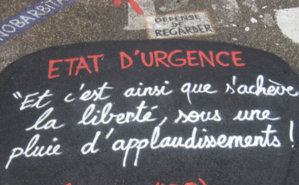 DEFENSE DE
REGARDER
ETAT D'URGENCE
"Et c'est ainsi que s'achève
la liberté, sous une
pluie d'applaudissements !